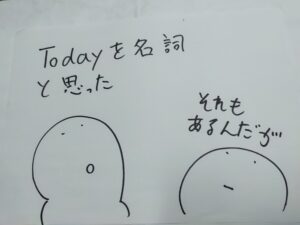 Todayを名詞
と思った
それも
あるんだが…